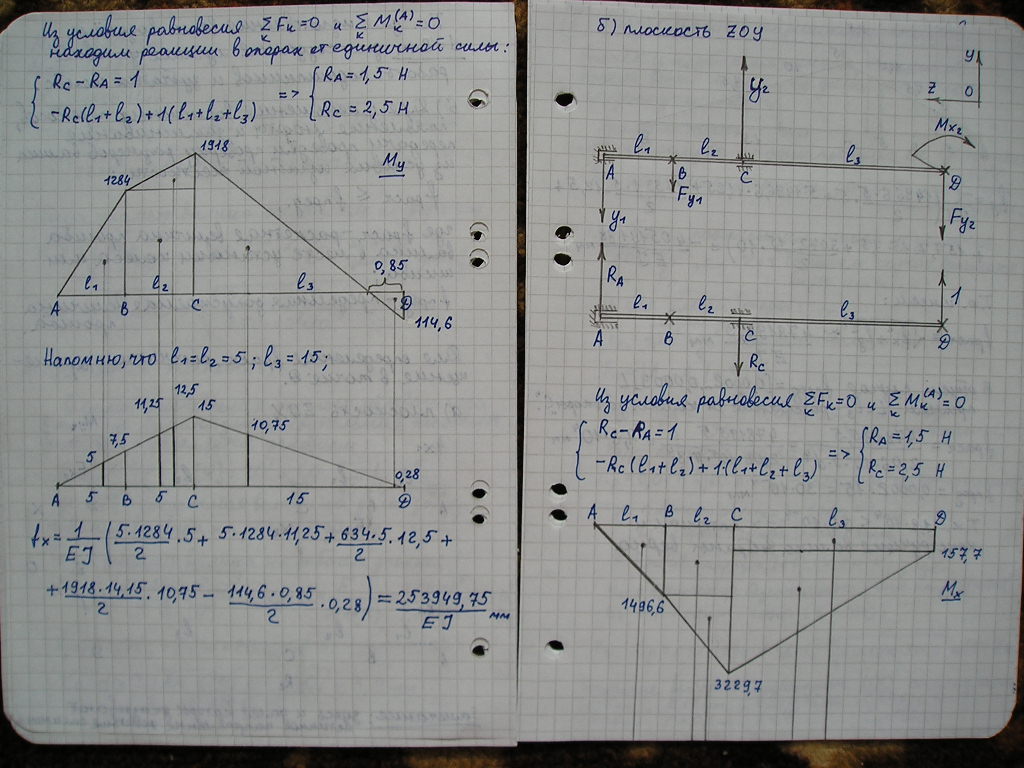 Из условия равновесия ∑Fк=0 и ∑Mк^(A)=0
к к
находим реакции в опорах от единичной силы:
Rc – RA = 1
–Rc(l1+l2)+1(l1+l2+l3)
=>
RA = 1,5 Н
Rc = 2,5 Н
1918
1284
My
0,85
A l1 B l2 C l3 D
114,6
Напомню, что l1=l2=5; l3=15;
12,5
11,25 15
10,75
7,5
5
0,28
A 5 B 5 C 15 D
fx = 1/EJ (5·1284/2 · 5 + 5·1284·11,25 + 634·5/2 · 12,5 +
+ 1918·14,15/2 · 10,75 – 114,6·0,85/2 · 0,28) = 253949,75/EJ мм
б) плоскость ZOY
y
Z O
y2
Mx2
l1 l2 l3
A B C D
Fy1
y1
Fy2
RA
1
l1 l2 l3
A B C D
Rc
Из условия равновесия ∑Fк=0 и ∑Mк^(A)=0
к к
Rc–RA=1
–Rc(l1+l2)+1·(l1+l2+l3)
=>
RA = 1,5 Н
Rc = 2,5 Н
A l1 B l2 C l3 D
157,7
1496,6
Mx
3229,7